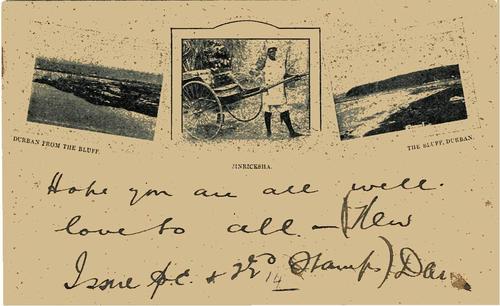 DURBAN FROM THE BLUFF.
JINRICKSHA.
THE BLUFF, DURBAN.
Hope you are all well.
love to all. — (New
Issue P.C. & Stamps) Dan